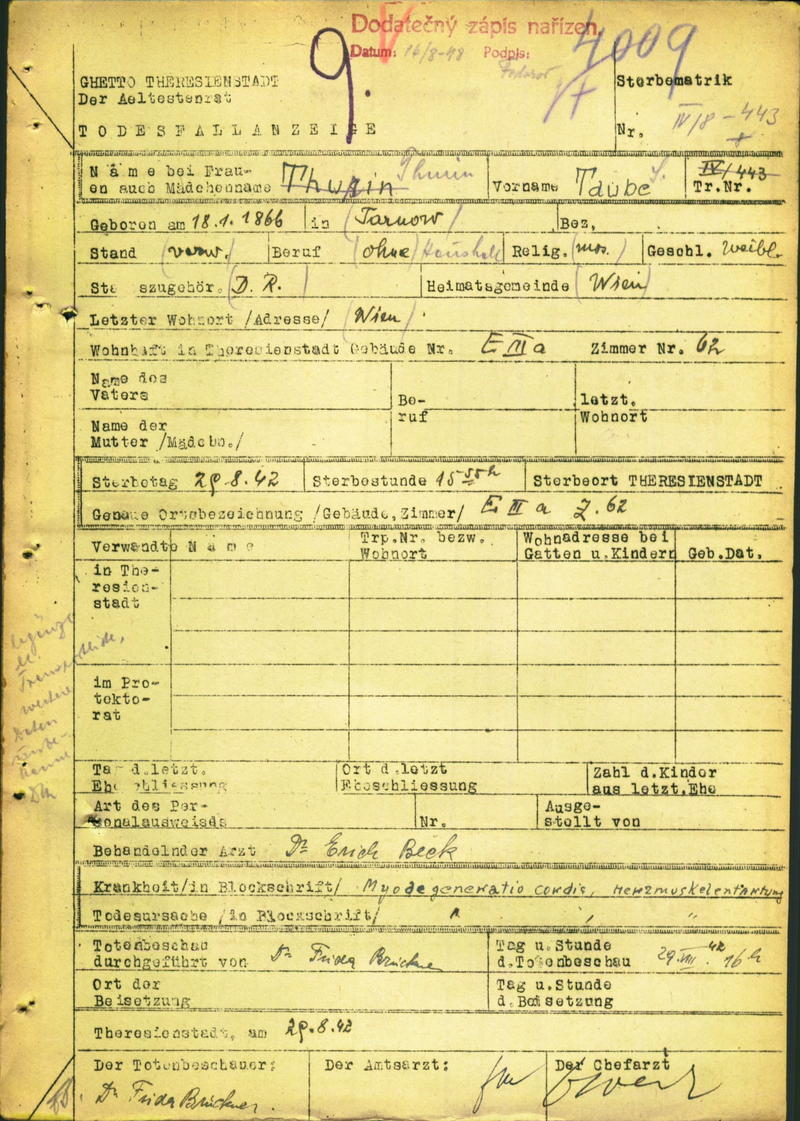 Dodatečný zápis nařízen.
Datum: 16/8-48 Podpis:
9. 4009
GHETTO THERESIENSTADT
Der Aeltestenrat
Sterbematrik
TODESFALLANZEIGE
Nr. IV/8-443
Name bei Frau-
en auch Mädchenname Thurin Thurin Vorname Taube S. IV/443
Tr.Nr.
Geboren am 18.1.1866 in Tarnow Bez.
Stand verw. Beruf ohne Haushalt Relig. mos. Geschl. weibl.
Sta szugehör. D. R. Heimatsgemeinde Wien
Letzter Wohnort /Adresse/ Wien
Wohnhaft in Theresienstadt Gebäude Nr. E III a Zimmer Nr. 62
Name des
Vaters
Be-
ruf
letzt.
Wohnort
Name der
Mutter /Mädchn./
Sterbetag 29.8.42 Sterbestunde 15 55 h Sterbeort THERESIENSTADT
Genaue Ortsbezeichnung /Gebäude, Zimmer/ E III a Z. 62
Verwandte Name Trp.Nr. bezw.
Wohnort Wohnadresse bei
Gatten u. Kindern Geb.Dat.
in The-
resien-
stadt
im Pro-
tekto-
rat
Tag d.letzt.
Eheschliessung
Ort d.letzt
Eheschliessung
Zahl d.Kinder
aus letzt.Ehe
Art des Per-
sonalausweises
Nr. Ausge-
stellt von
Behandelnder Arzt Dr Erich Beck
Krankheit/in Blockschrift/ Myodegeneratio cordis, Herzmuskelentartung
Todesursache /in Blockschrift/ " " "
Totenbeschau
durchgeführt von Dr Frida Brückner
Tag u.Stunde
d.Totenbeschau 29.VIII.42 16 h
Ort der
Beisetzung
Tag u.Stunde
d.Beisetzung
Theresienstadt, am 29.8.42
Der Totenbeschauer: Der Amtsarzt: Der Chefarzt
Dr Frida Brückner.